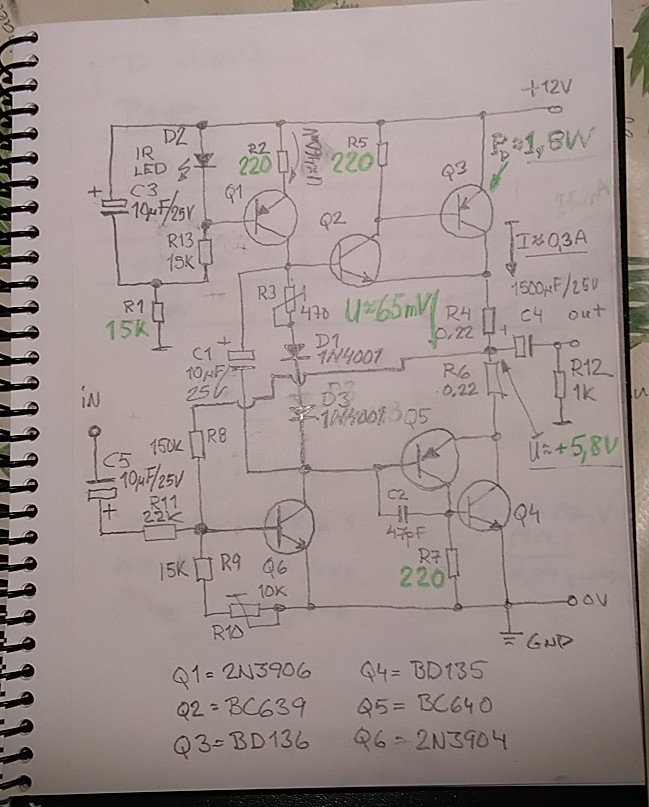 +12V
D2
IR
LED
C3
+
10µF/25V
R13
15K
R1
15K
R2
220
U≈460mV
Q1
R5
220
Q2
Q3
P≈1,8W
I≈0,3A
1500µF/25V
C4
out
+
R12
1K
R3
470
U≈65mV
R4
0,22
R6
0,22
U≈+5,8V
D1
1N4007
D3
C1
+
10µF/
25V
iN
C5
10µF/25V
+
R11
22K
150K
R8
15K
R9
10K
R10
Q6
Q5
C2
47pF
R7
220
Q4
0V
GND
Q1=2N3906
Q4=BD135
Q2=BC639
Q5=BC640
Q3=BD136
Q6=2N3904